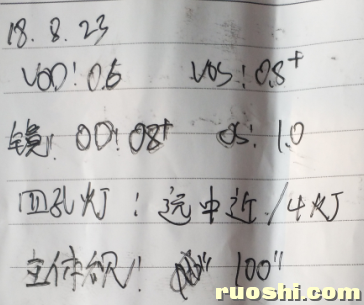 18.8.23
VOD:0.6 VOS:0.8+
镜: OD:0.8+ OS:1.0
四孔灯:远中近/4灯
立体视: 100"
ruoshi.com